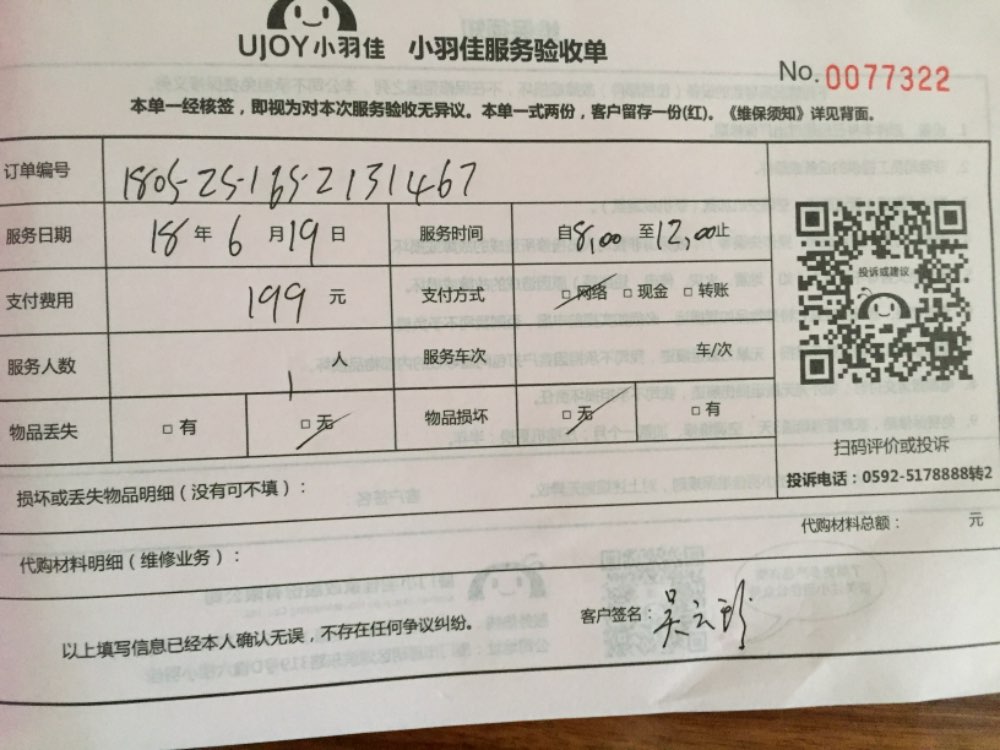 UJOY小羽佳 小羽佳服务验收单
No.0077322
本单一经核签，即视为对本次服务验收无异议。本单一式两份，客户留存一份(红)。《维保须知》详见背面。
订单编号 1805-25-165-2131467
服务日期 18 年 6 月 19 日 服务时间 自8:00 至12:00止
支付费用 199 元 支付方式 □ 网络 □ 现金 □ 转账
投诉或建议
服务人数 1 人 服务车次 车/次
物品丢失 □ 有 □ 无 物品损坏 □ 无 □ 有
扫码评价或投诉
投诉电话：0592-5178888转2
损坏或丢失物品明细（没有可不填）：
代购材料总额： 元
代购材料明细（维修业务）：
以上填写信息已经本人确认无误，不存在任何争议纠纷。 客户签名：吴云